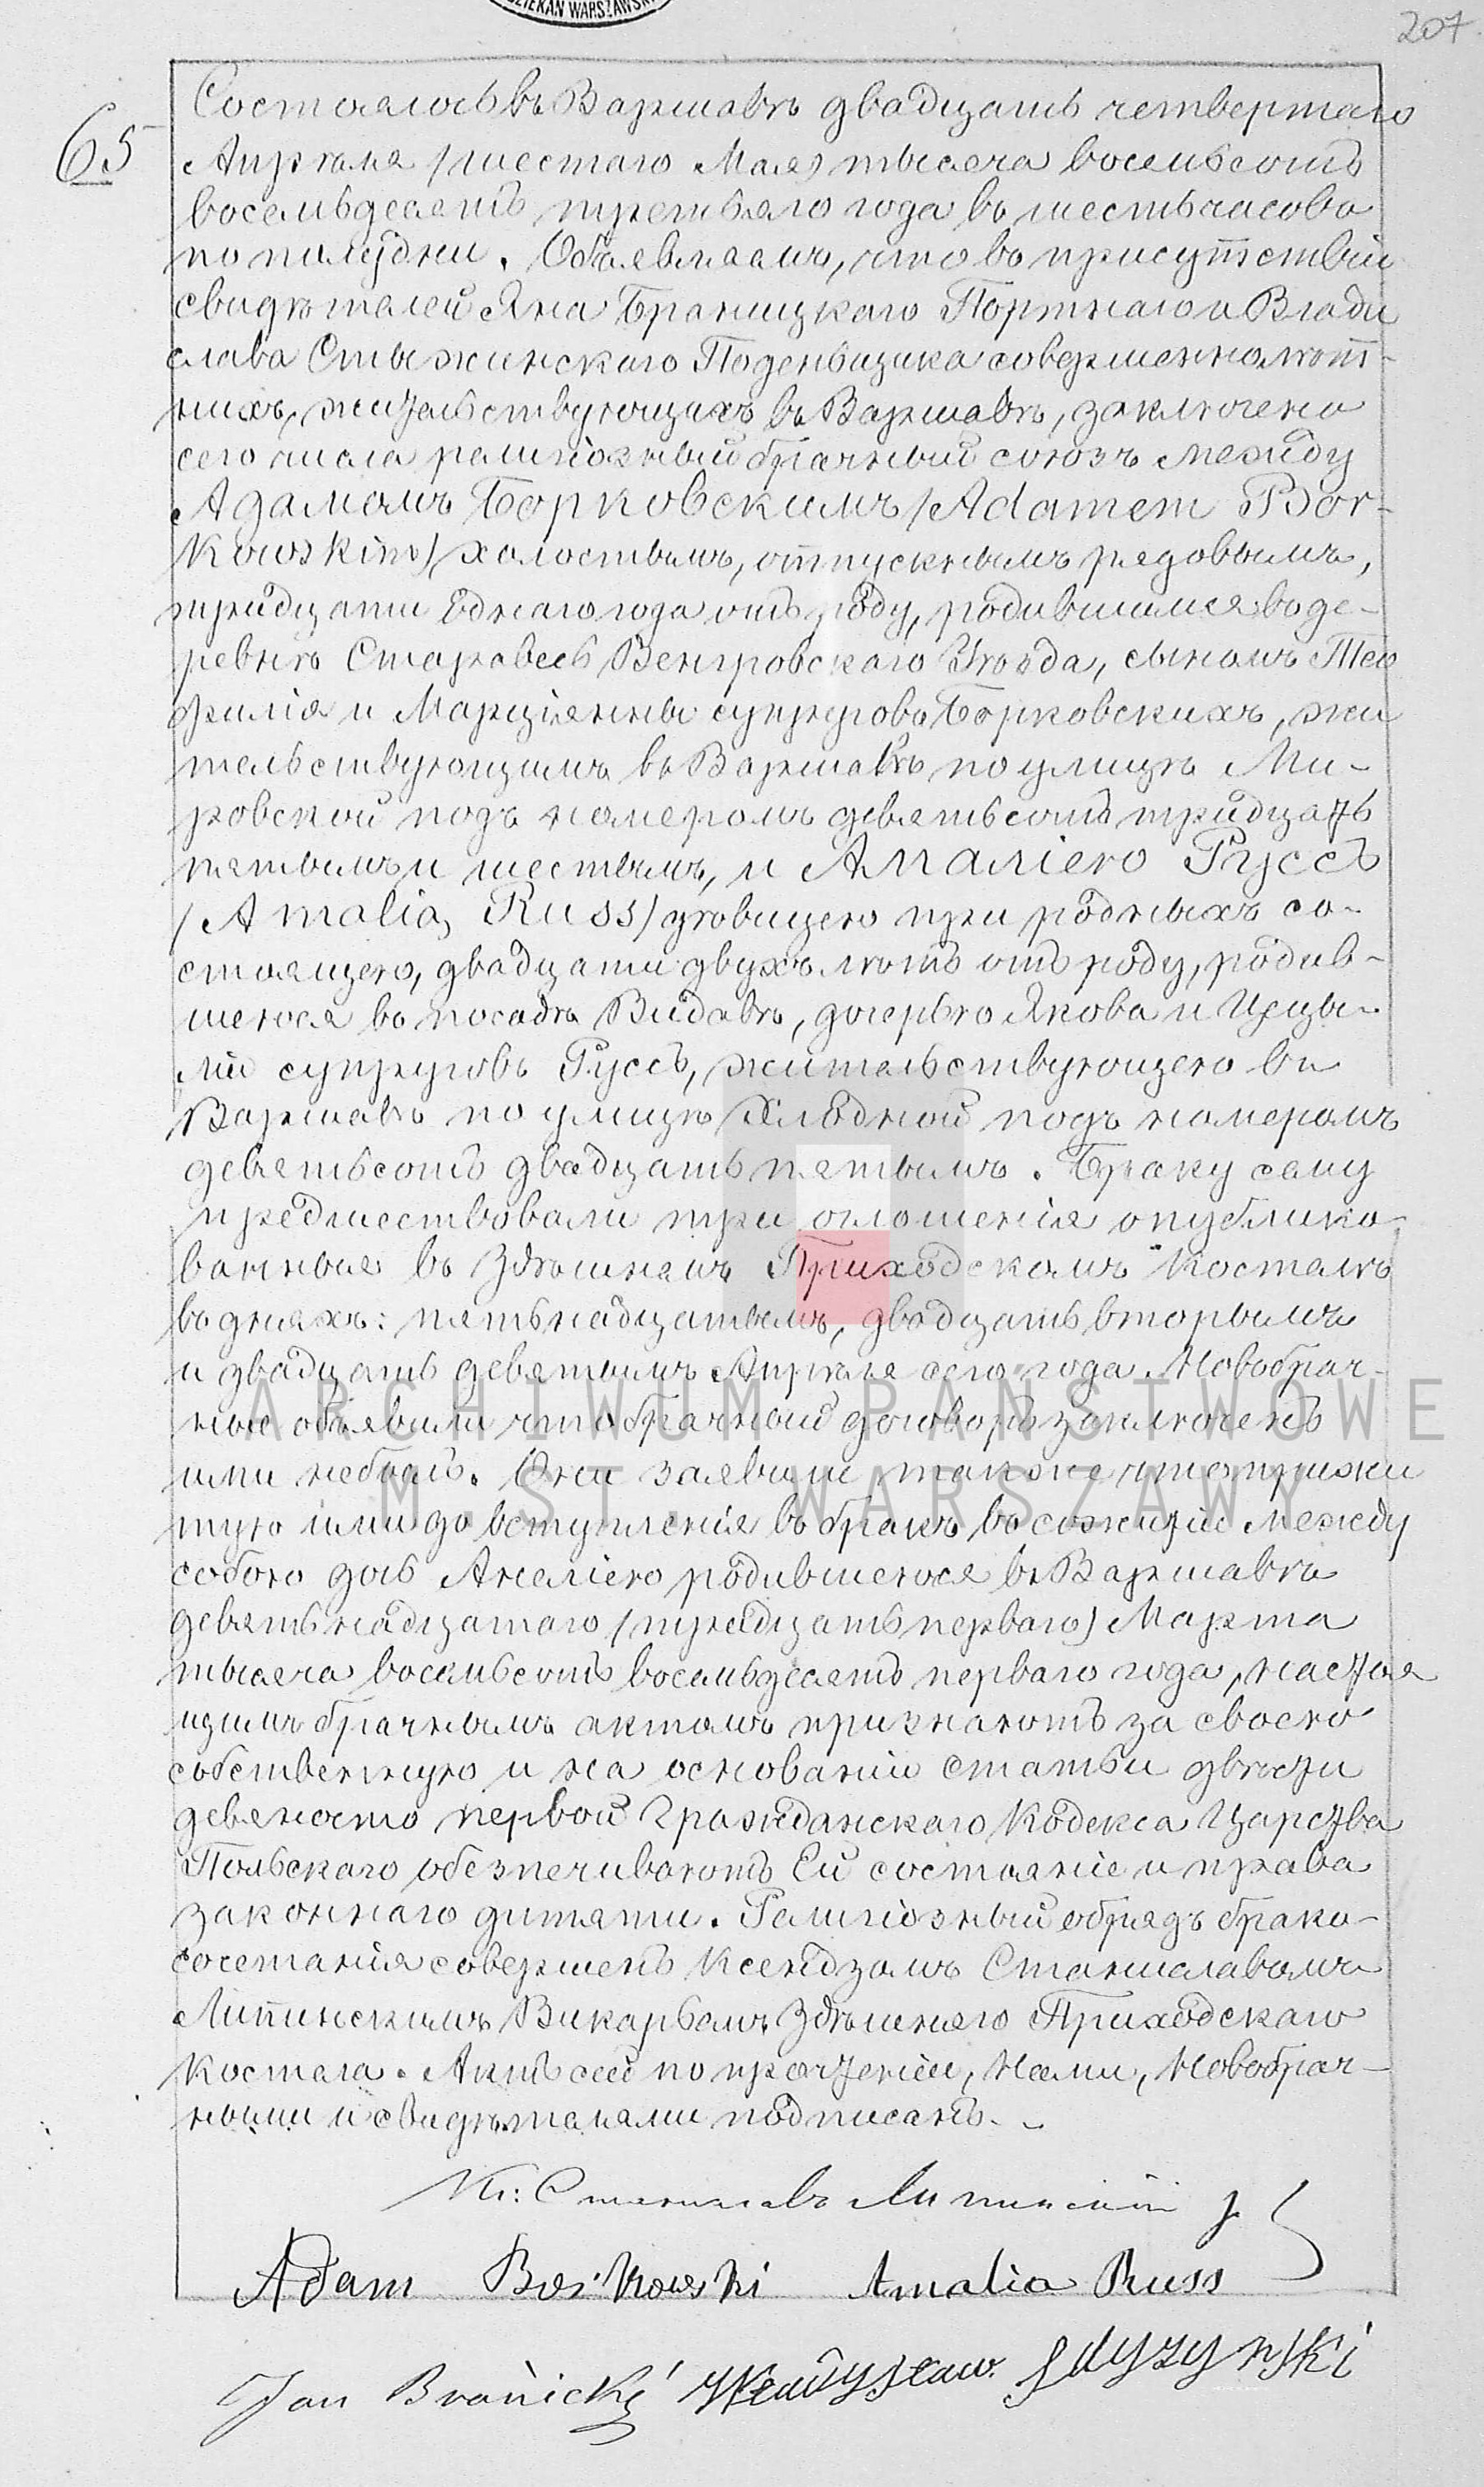 DZIEKAN WARSZAWSKI
207.
65
Состоялось въ Варшавѣ двадцать четвертаго
Апрѣля /шестаго Мая/ тысяча восемьсотъ
восемьдесятъ третьяго года въ шесть часовъ
по полудни. Объявляемъ, что въ присутствіи
свидѣтелей Яна Браницкаго Портнаго и Влади
слава Стыжинскаго Поденьщика совершеннолѣт-
нихъ, жительствующихъ въ Варшавѣ, заключено
сего числа религіозный брачный союзъ между
Адамомъ Борковскимъ /Adamem Bor-
kowskim/ холостымъ, отпускнымъ рядовымъ,
тридцати одного года отъ роду, родившимся въ де-
ревнѣ Старавесь Венгровскаго Уѣзда, сыномъ Тео
филія и Марціянны супруговъ Борковскихъ, жи
тельствующимъ въ Варшавѣ по улицѣ Ми-
ровской подъ номеромъ девятьсотъ тридцать
пятымъ и шестымъ, и Амаліею Руссъ
/Amalią Russ/ дѣвицею при родныхъ со-
стоящею, двадцати двухъ лѣтъ отъ роду, родив-
шеюся въ посадѣ Видавѣ, дочерью Якова и Цецы-
ліи супруговъ Руссъ, жительствующею въ
Варшавѣ по улицѣ Хлодной подъ номеромъ
девятьсотъ двадцать пятымъ. Браку сему
предшествовали три оглошенія опублико-
ванныя въ здѣшнемъ Приходскомъ Костелѣ
въ дняхъ: пятьнадцатымъ, двадцать вторымъ
и двадцать девятымъ Апрѣля сего года. Новобрач-
ные объявили что брачный договоръ заключенъ
ими небылъ. Они заявили также что прижи
тую ими до вступленія въ бракъ въ сожитіи между
собою дочь Анелію родившеюся въ Варшавѣ
девятьнадцатаго /тридцать перваго/ Марта
тысяча восемьсотъ восемьдесятъ перваго года, настоя
щимъ брачнымъ актомъ признаютъ за свою
собственную и на основаніи статьи двѣсти
девяносто первой Гражданскаго Кодекса Царства
Польскаго обезпечиваютъ Ей состояніе и права
законнаго дитяти. Религіозный обрядъ брако-
сочетанія совершенъ Ксендзомъ Станиславомъ
Липинскимъ Викарьемъ Здѣшняго Приходскаго
Костела. Актъ сей по прочтеніи, Нами, Новобрач-
ными и свидѣтелями подписанъ. -
Кс: Станиславъ Липинскій
Adam Borkowski Amalia Russ
Jan Branicki Władysław Stdyzynski
ARCHIWUM PAŃSTWOWE
M. ST. WARSZAWY